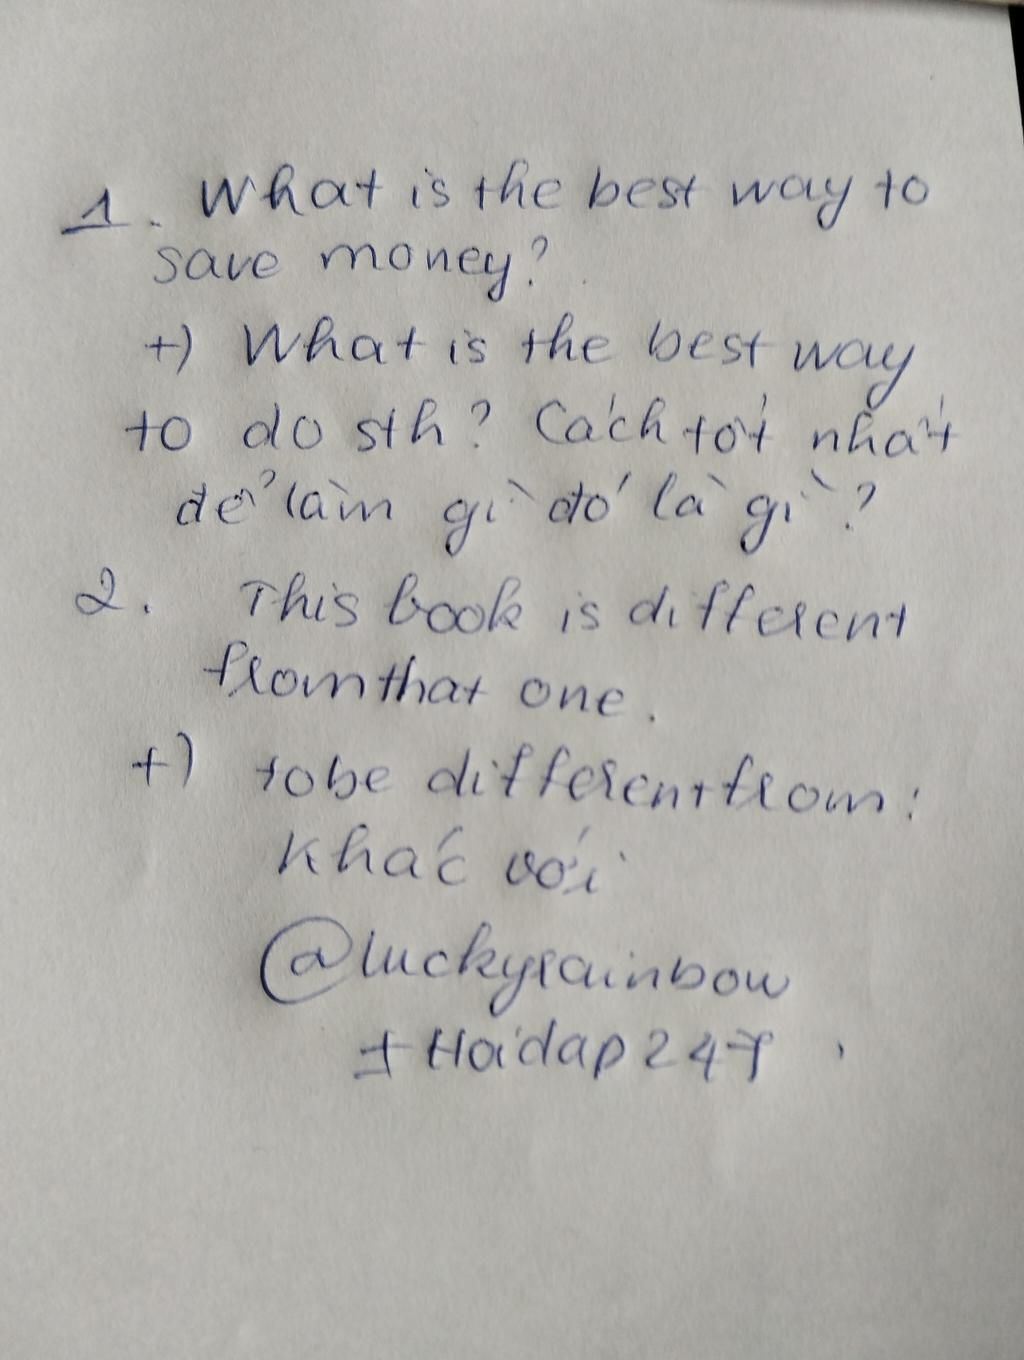 1. What is the best way to
save money?
+) What is the best way
to do sth? Cách tốt nhất
để làm gì đó là gì?
2. This book is different
from that one.
+) to be different from:
khác với
@luckyrainbow
# Hoidap247